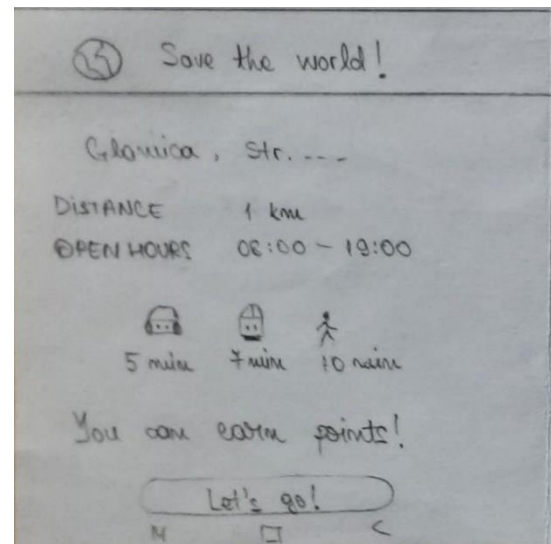 Save the world!
Glavnica, Str. ...
DISTANCE 1 km
OPEN HOURS 08:00 - 19:00
5 min 7 min 10 min
You can earn points!
Let's go!